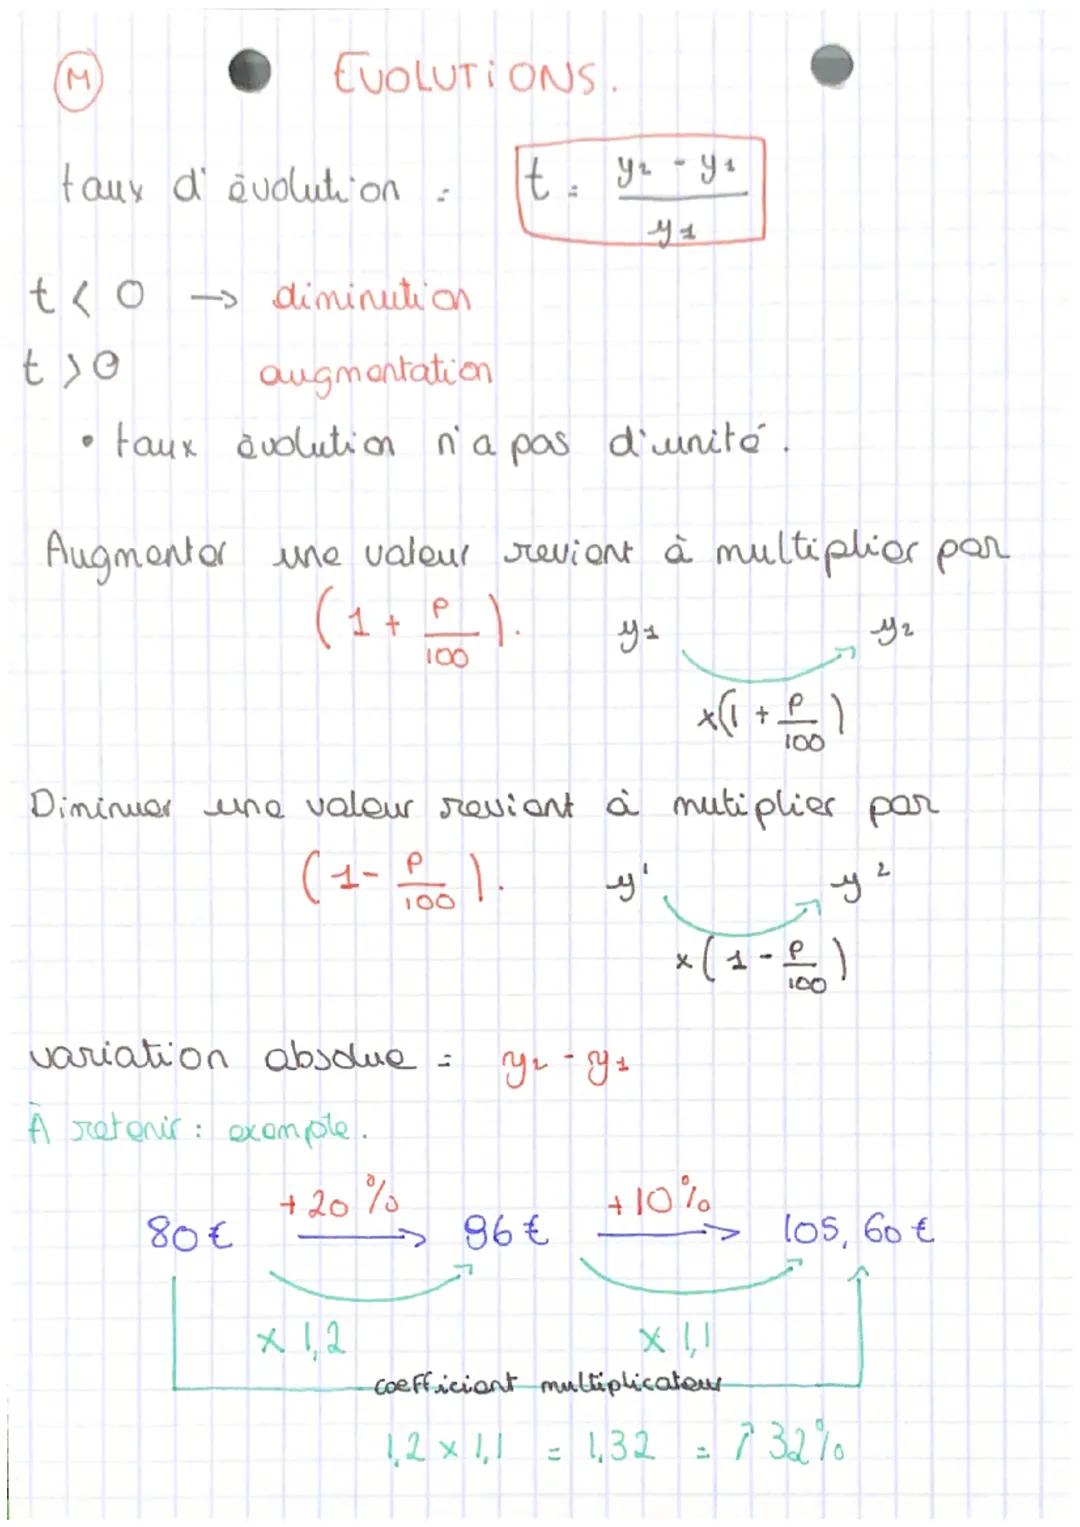 M EVOLUTIONS.
taux d'évolution = t = y2 - y1 / y1
t < 0 → diminution
t > 0 augmentation
• taux évolution n'a pas d'unité.
Augmenter une valeur revient à multiplier par
(1 + P/100). y1 y2
x(1 + P/100)
Diminuer une valeur revient à mutiplier par
(1 - P/100). y1 y2
x(1 - P/100)
variation absolue = y2 - y1
À retenir : exemple.
+20% +10%
80€ → 96€ → 105,60€
x 1,2 x 1,1
coefficient multiplicateur
1,2 x 1,1 = 1,32 = ↗ 32%